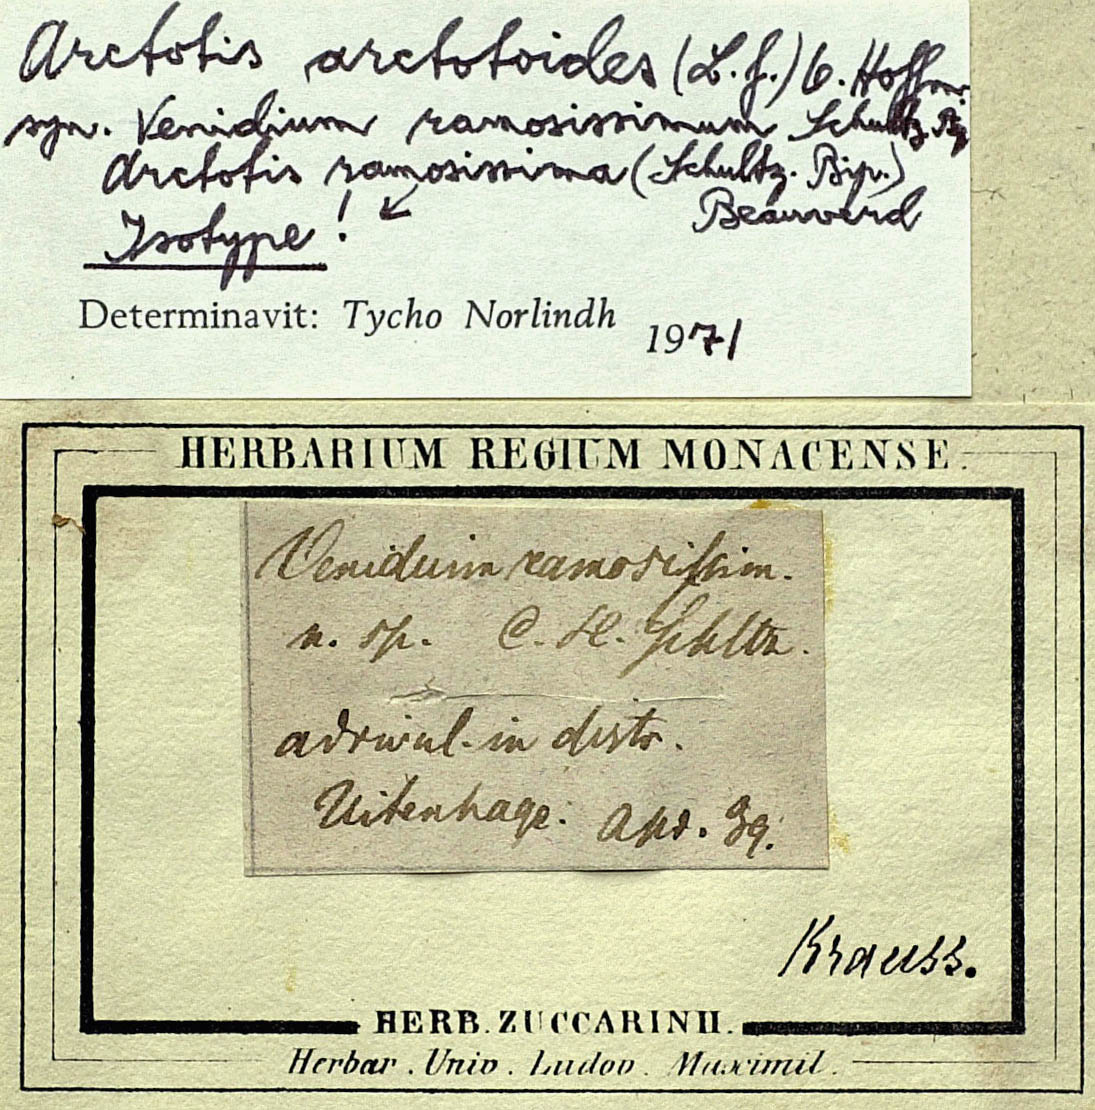 Arctotis arctotoides (L. f.) O. Hoffm.
syn. Venidium ramosissimum Schultz. Bip.
Arctotis ramosissima (Schultz. Bip.)
Beauverd
Isotype !
Determinavit: Tycho Norlindh 1971
HERBARIUM REGIUM MONACENSE.
Venidium ramosissim.
n. sp. C. H. Schltz.
ad rivul. in distr.
Uitenhage. Apr. 39.
Krauss.
HERB. ZUCCARINII.
Herbar. Univ. Ludov. Maximil.